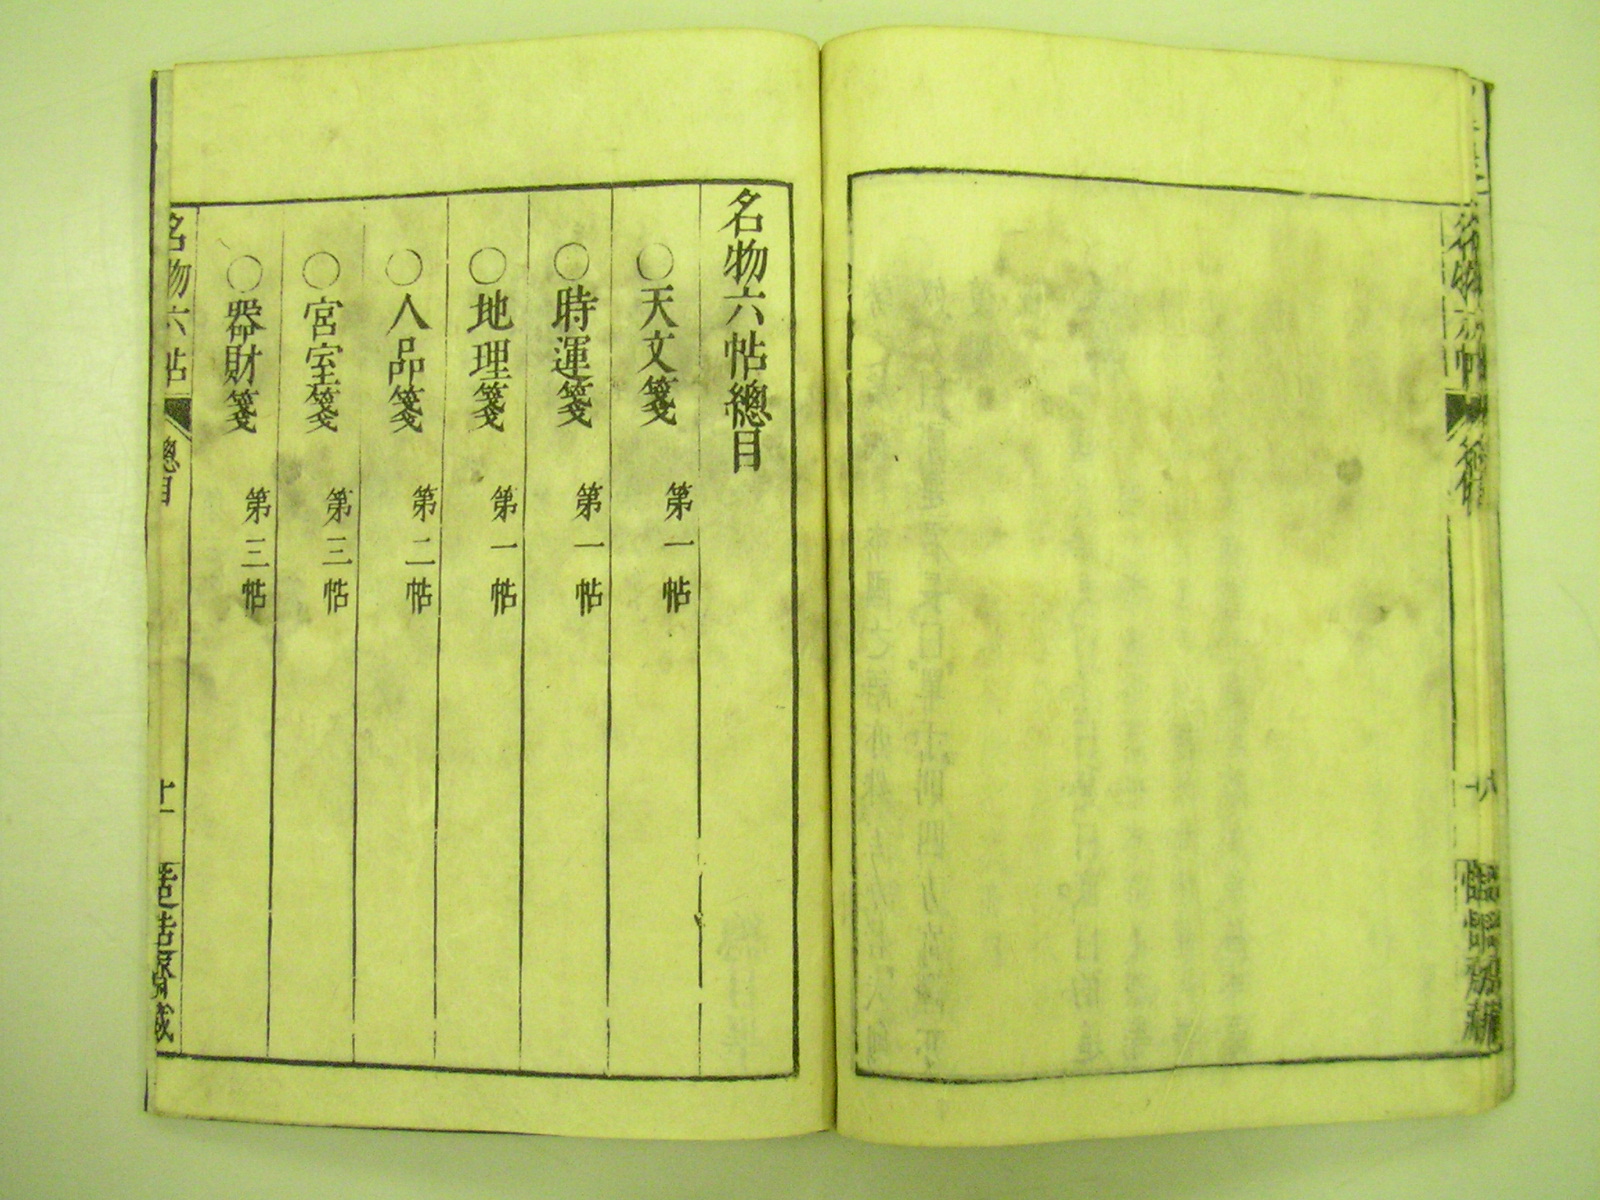 名物六帖總目
○天文箋 第一帖
○時運箋 第一帖
○地理箋 第一帖
○人品箋 第二帖
○宮室箋 第三帖
○器財箋 第三帖
名物六帖 總目 十一